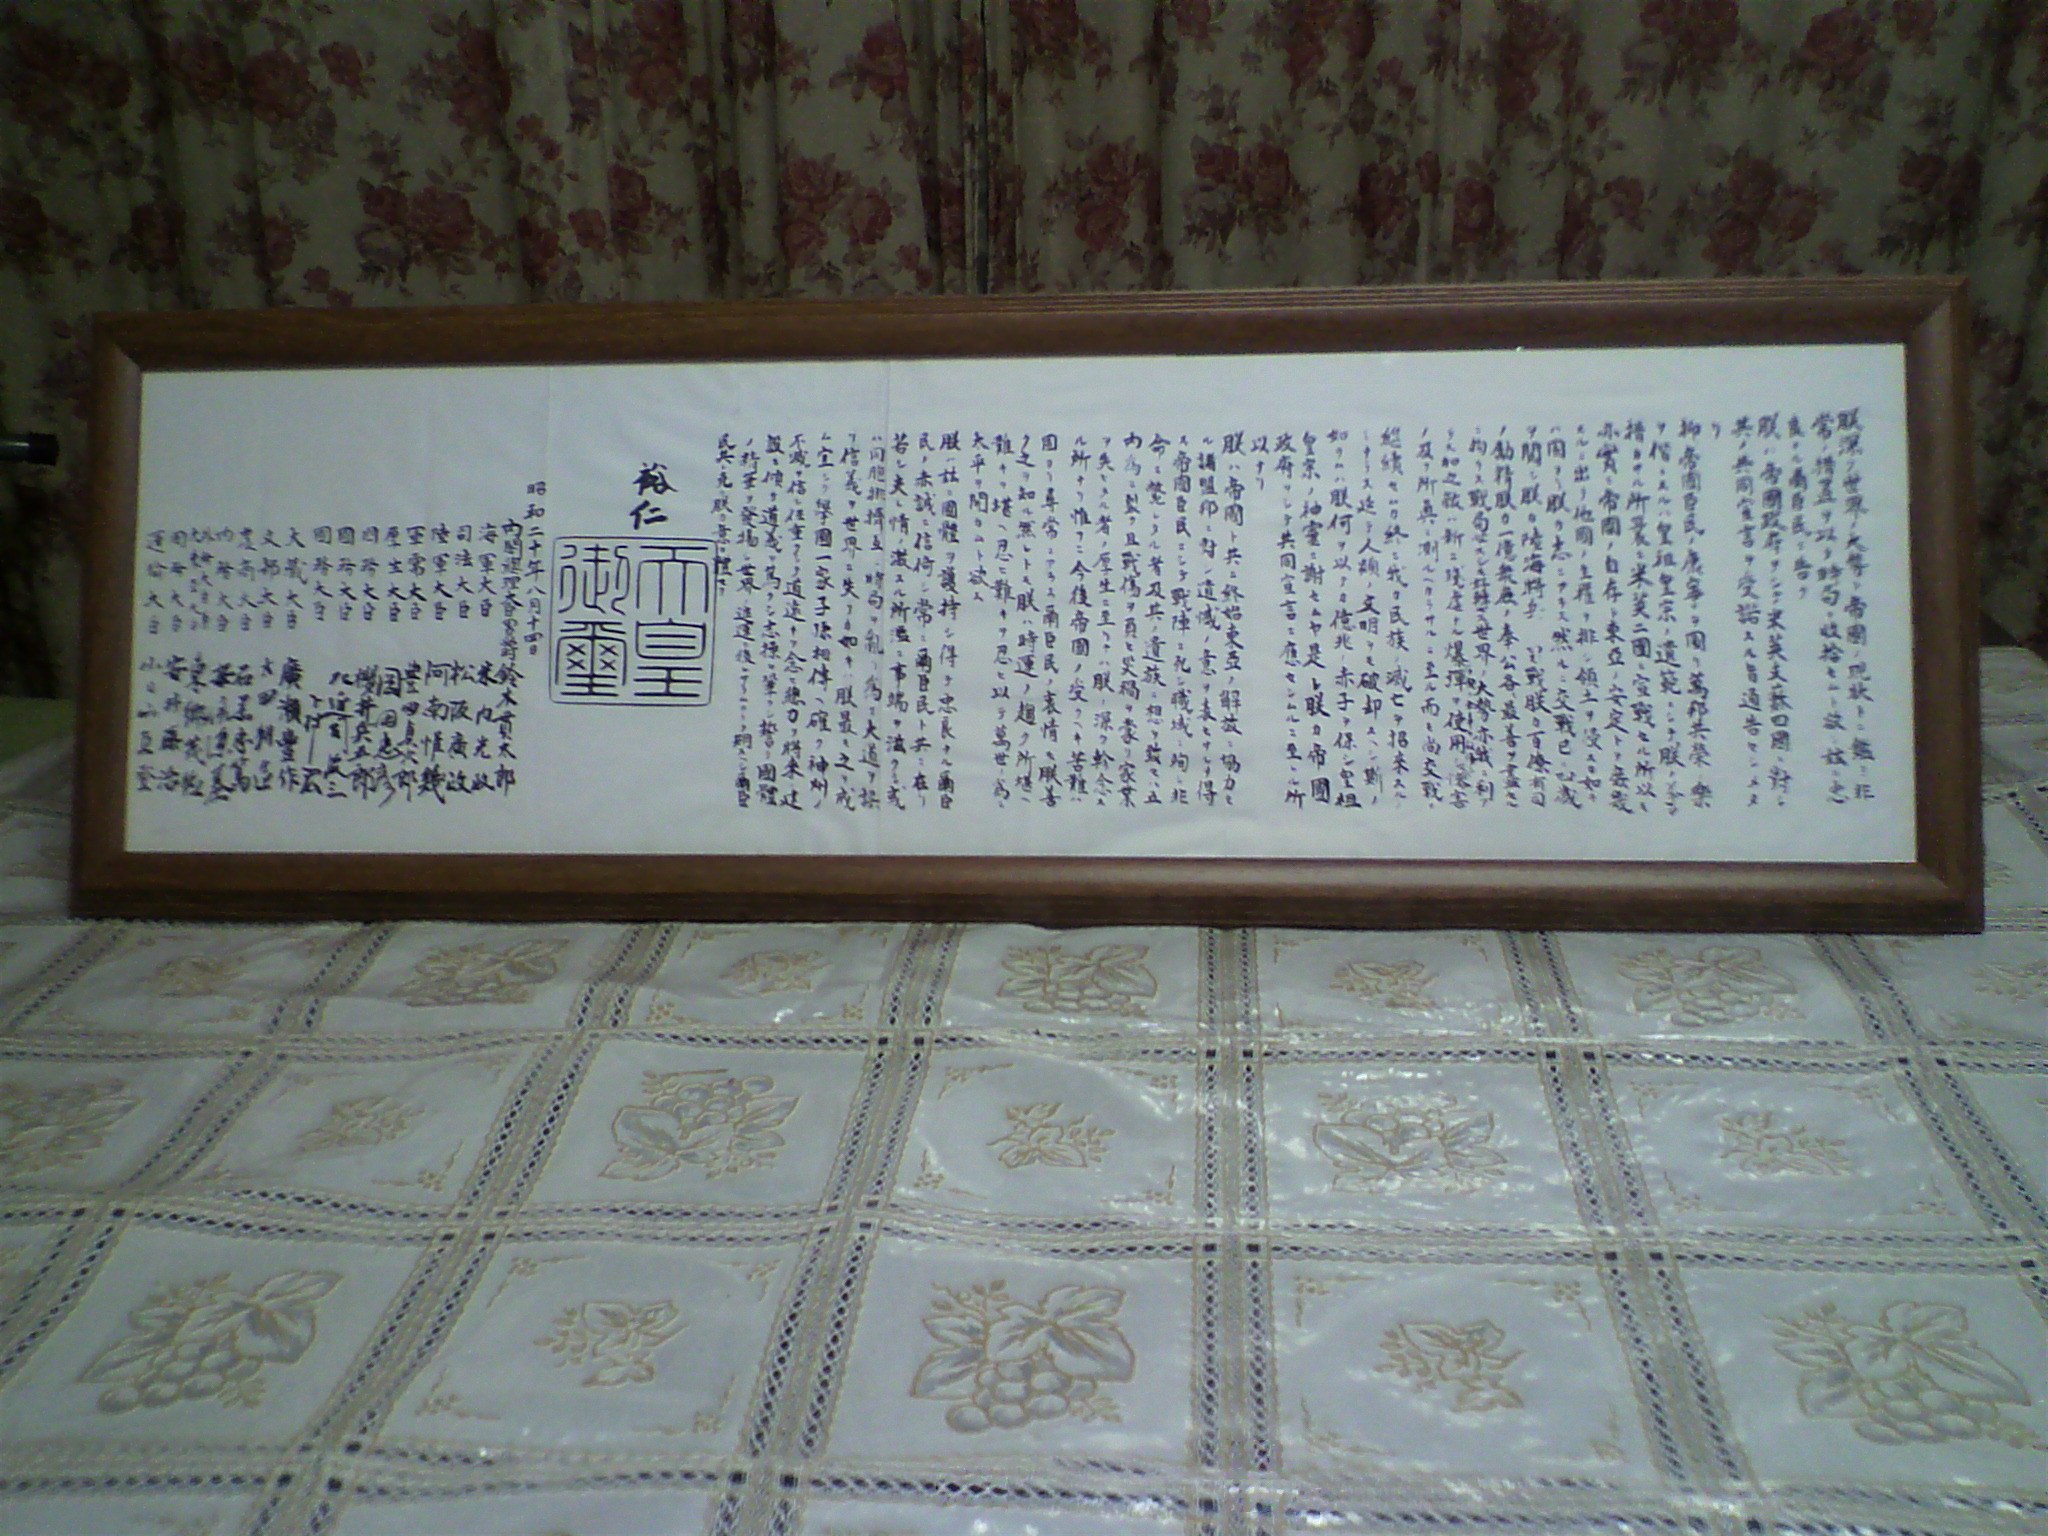 朕深ク世界ノ大勢ト帝國ノ現狀トニ鑑ミ非
常ノ措置ヲ以テ時局ヲ收拾セムト欲シ茲ニ忠
良ナル爾臣民ニ告ク
朕ハ帝國政府ヲシテ米英支蘇四國ニ對シ
其ノ共同宣言ヲ受諾スル旨通告セシメタ
リ
抑〻帝國臣民ノ康寧ヲ圖リ萬邦共榮ノ樂
ヲ偕ニスルハ皇祖皇宗ノ遺範ニシテ朕ノ
措カサル所曩ニ米英二國ニ宣戰セル所以モ
亦實ニ帝國ノ自存ト東亞ノ安定トヲ
スルニ出テ他國ノ主權ヲ排シ領土ヲ侵スカ如キ
ハ固ヨリ朕カ志ニアラス然ルニ交戰已ニ四歲
ヲ閲シ朕カ陸海將兵ノ 戰朕カ百僚有司
ノ勵精朕カ一億衆庶ノ奉公各〻最善ヲ盡セ
ニ拘ラス戰局 世界ノ大勢亦我ニ利ア
ラス加之敵ハ新ニ殘虐ナル爆彈ヲ使用シ
ノ及フ所眞ニ測ルヘカラサルニ至ル而モ尚交戰ヲ
繼續セムカ終ニ我カ民族ノ滅亡ヲ招來スル
ノミナラス延テ人類ノ文明ヲモ破却スヘシ斯ノ
如クムハ朕何ヲ以テカ億兆ノ赤子ヲ保シ皇祖
皇宗ノ神靈ニ謝セムヤ是レ朕カ帝國
政府ヲシテ共同宣言ニ應セシムルニ至レル所
以ナリ
朕ハ帝國ト共ニ終始東亞ノ解放ニ協力セ
ル諸盟邦ニ對シ遺憾ノ意ヲ表セサルヲ得
ス帝國臣民ニシテ戰陣ニ死シ職域ニ殉シ非
命ニ斃レタル者及其ノ遺族ニ想ヲ致セハ五
內爲ニ裂ク且戰傷ヲ負ヒ災禍ヲ蒙リ家業
ヲ失ヒタル者ノ厚生ニ至リテハ朕ノ深ク軫念ス
ル所ナリ惟フニ今後帝國ノ受クヘキ苦難ハ
固ヨリ尋常ニアラス爾臣民ノ衷情モ朕善
ク之ヲ知ル然レトモ朕ハ時運ノ趨ク所堪ヘ
難キヲ堪ヘ忍ヒ難キヲ忍ヒ以テ萬世ノ爲ニ
太平ヲ開カムト欲ス
朕ハ茲ニ國體ヲ護持シ得テ忠良ナル爾臣
民ノ赤誠ニ信倚シ常ニ爾臣民ト共ニ在リ
若シ夫レ情ノ激スル所濫ニ事端ヲ滋クシ或
ハ同胞排擠互ニ時局ヲ亂リ爲ニ大道ヲ誤
リ信義ヲ世界ニ失フカ如キハ朕最モ之ヲ戒
ム宜シク擧國一家子孫相傳ヘ確ク神州ノ
不滅ヲ信シ任重クシテ道遠キヲ念ヒ總力ヲ將來ノ建
設ニ傾ケ道義ヲ篤クシ志操ヲ鞏クシ誓テ國體
ノ精華ヲ發揚シ世界ノ進運ニ後レサラムコトヲ期スヘシ爾臣
民其レ克ク朕カ意ヲ體セヨ
裕仁
天皇
御璽
昭和二十年八月十四日
內閣總理大臣男爵 鈴木貫太郎
海軍大臣 米內光政
司法大臣 松阪廣政
陸軍大臣 阿南惟幾
軍需大臣 豐田貞次郎
厚生大臣 岡田忠彥
國務大臣 櫻井兵五郎
國務大臣 左近司政三
國務大臣 下村宏
大藏大臣 廣瀨豐作
文部大臣 太田耕造
農商大臣 石黑忠篤
內務大臣 安倍源基
外務大臣兼
大東亞大臣 東鄕茂德
國務大臣 安井藤治
運輸大臣 小日山直登